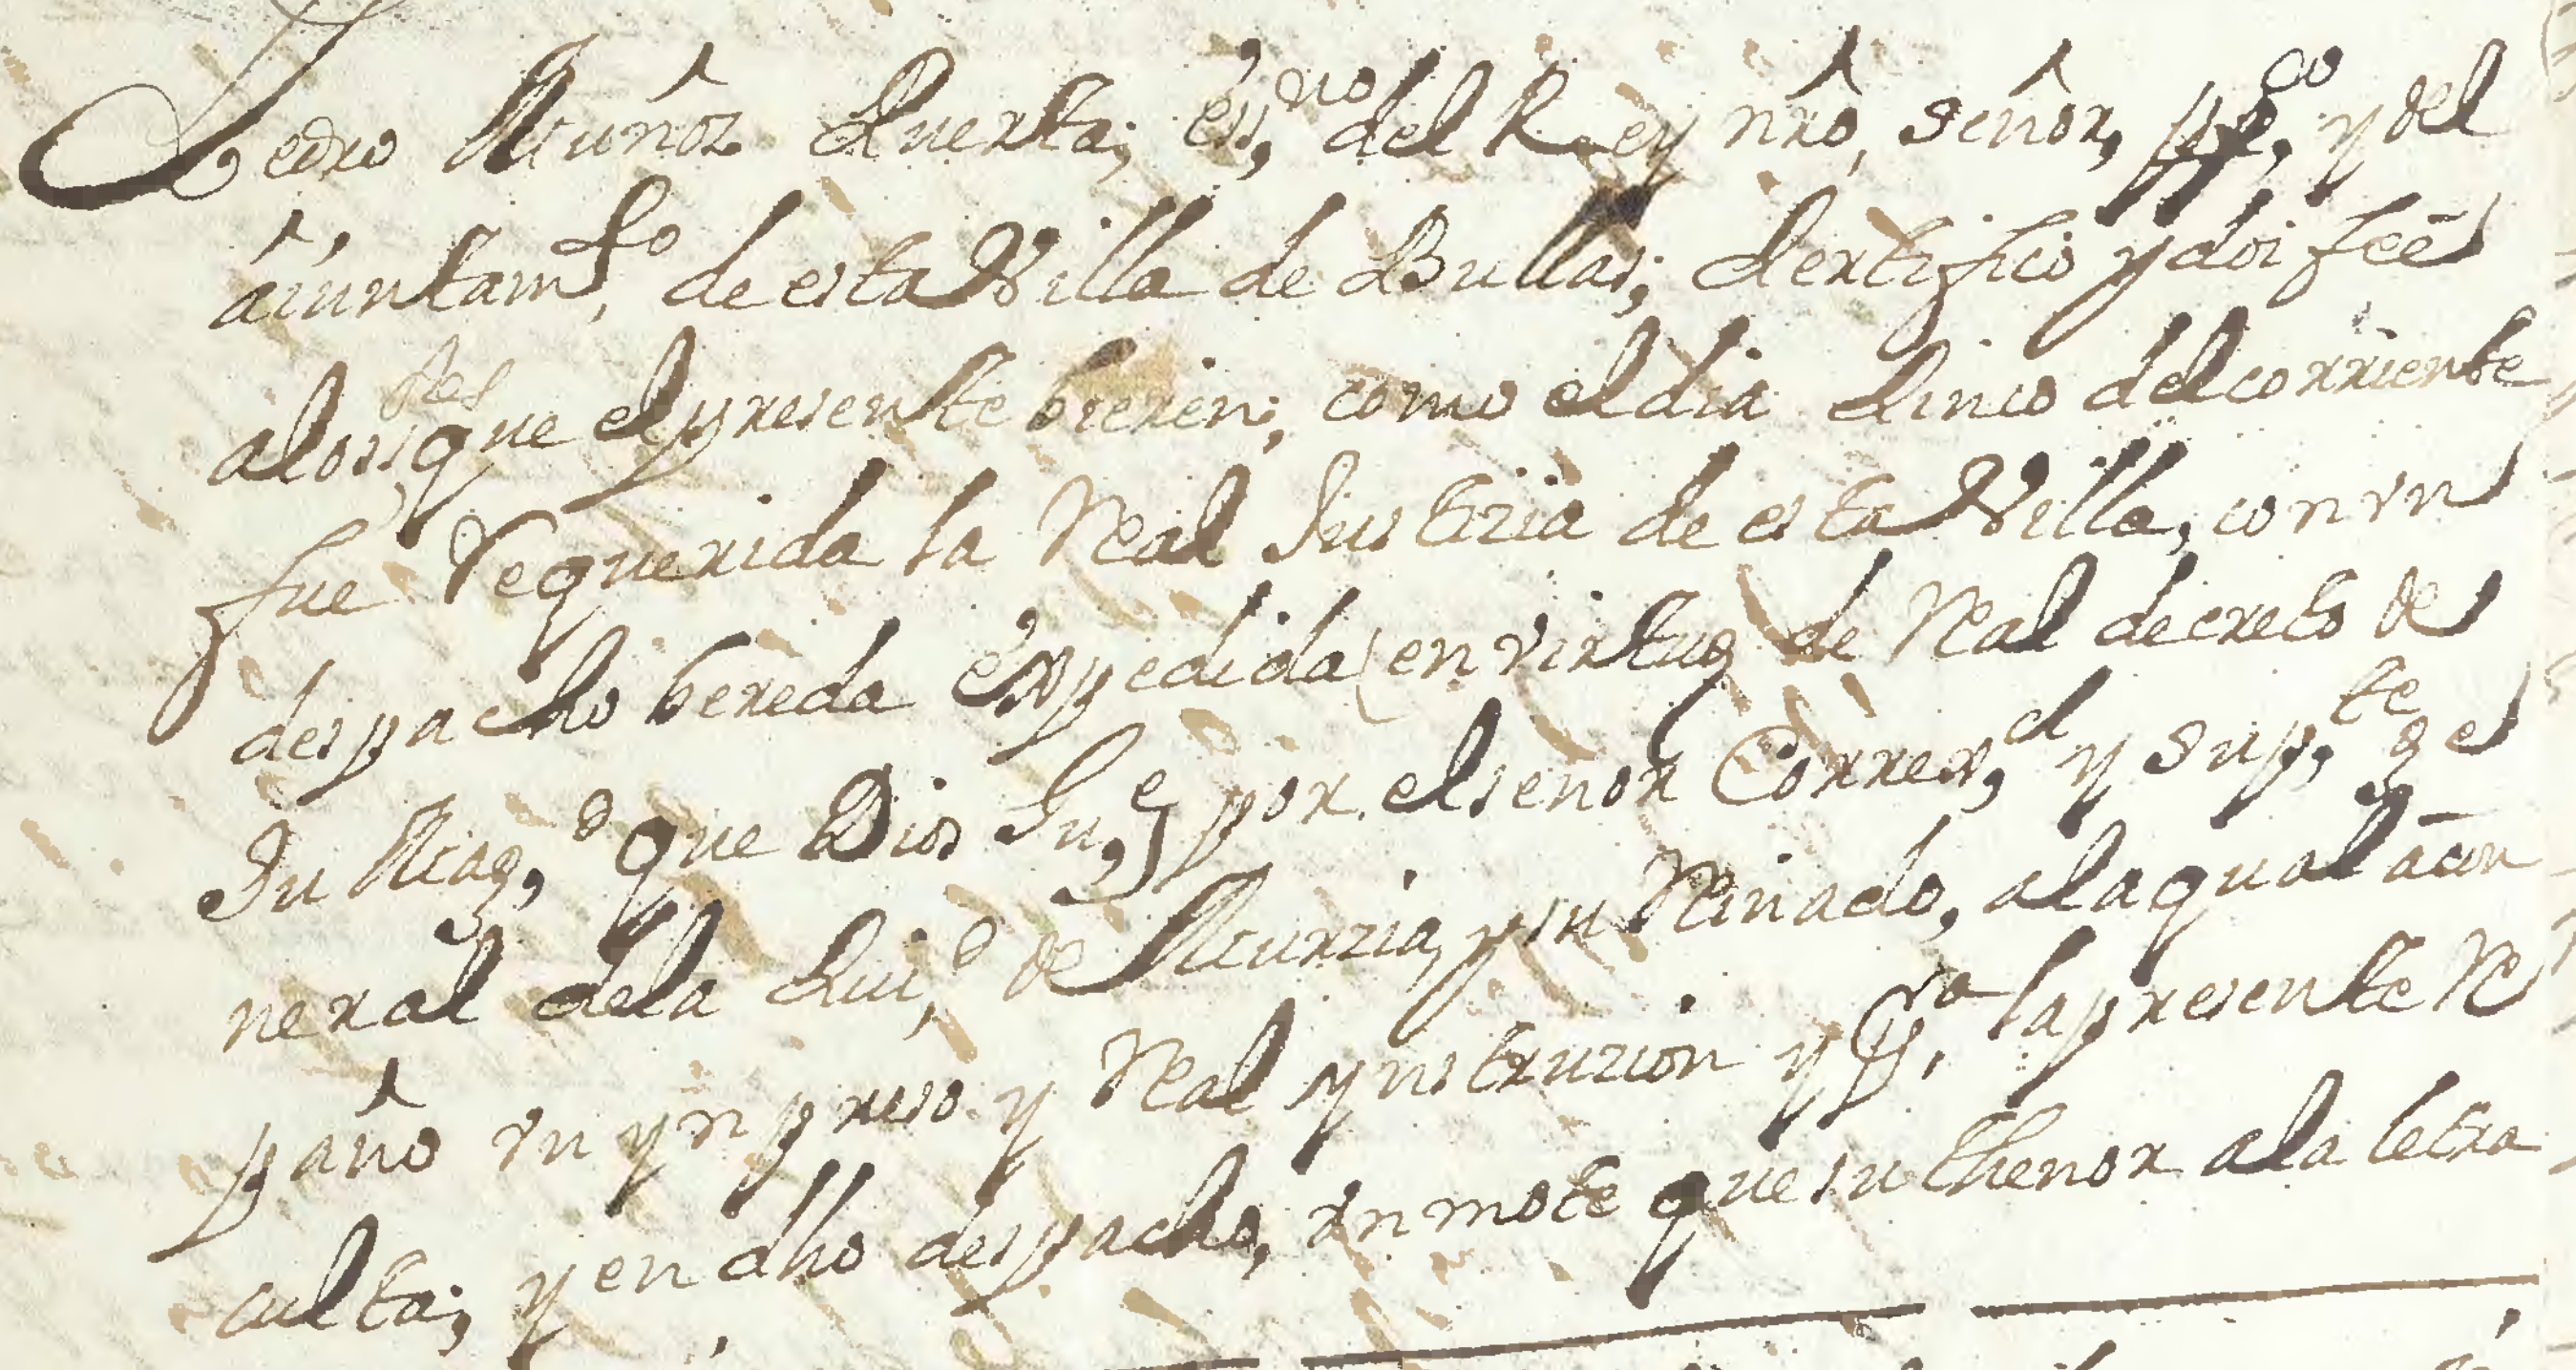 Pedro Muñoz Puerta; ess,no del Rey nrō, señor, pp,co y del
aiuntam,to de esta Villa de Bullas; Zertifico y doi feē
alos sres que el presente bieren; como el dia Zinco del corriente
fue Requerida la Real Justizia de esta Villa, con vn
despacho bereda expedida (en virtud de Real decreto de
Su Mag,d que Dios Gu,e) por el señor Correx,or y sup,te ge
neral dela Ciu,d de Murzia, y su Reinado, ala qual acōn
pañō vn ynpreso y Real ynstruzion y p,ra la presente Re
culta; y en dho despacho, que su thenor ala letra